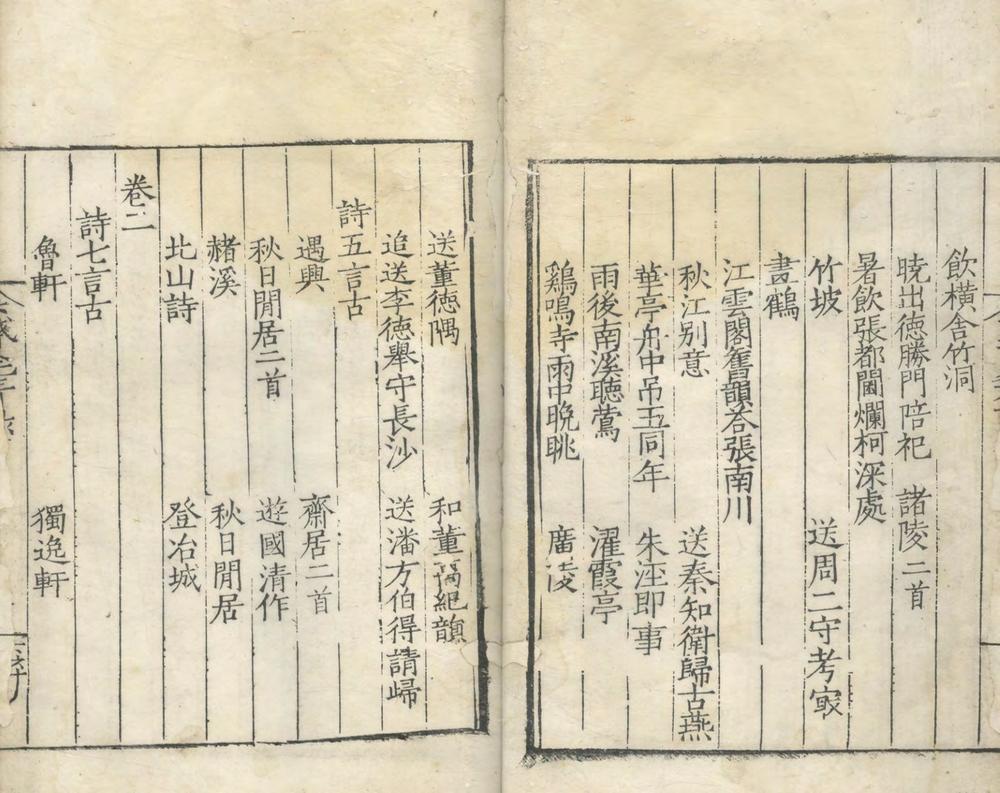 飲橫舍竹洞
曉出德勝門陪祀 諸陵二首
暑飲張都閫爛柯深處
竹坡 送周二守考㝡
畫鶴
江雲閣舊韻荅張南川
秋江别意 送秦知衛歸古燕
華亭舟中吊王同年 朱涇即事
雨後南溪聽鶯 濯霞亭
鷄鳴寺雨中晚眺 廣陵
送董德隅 和董隅絕韻
追送李德舉守長沙 送潘方伯得請歸
詩五言古
遇興 齋居二首
秋日閒居二首 遊國清作
赭溪 秋日閒居
北山詩 登冶城
卷二
詩七言古
魯軒 獨逸軒